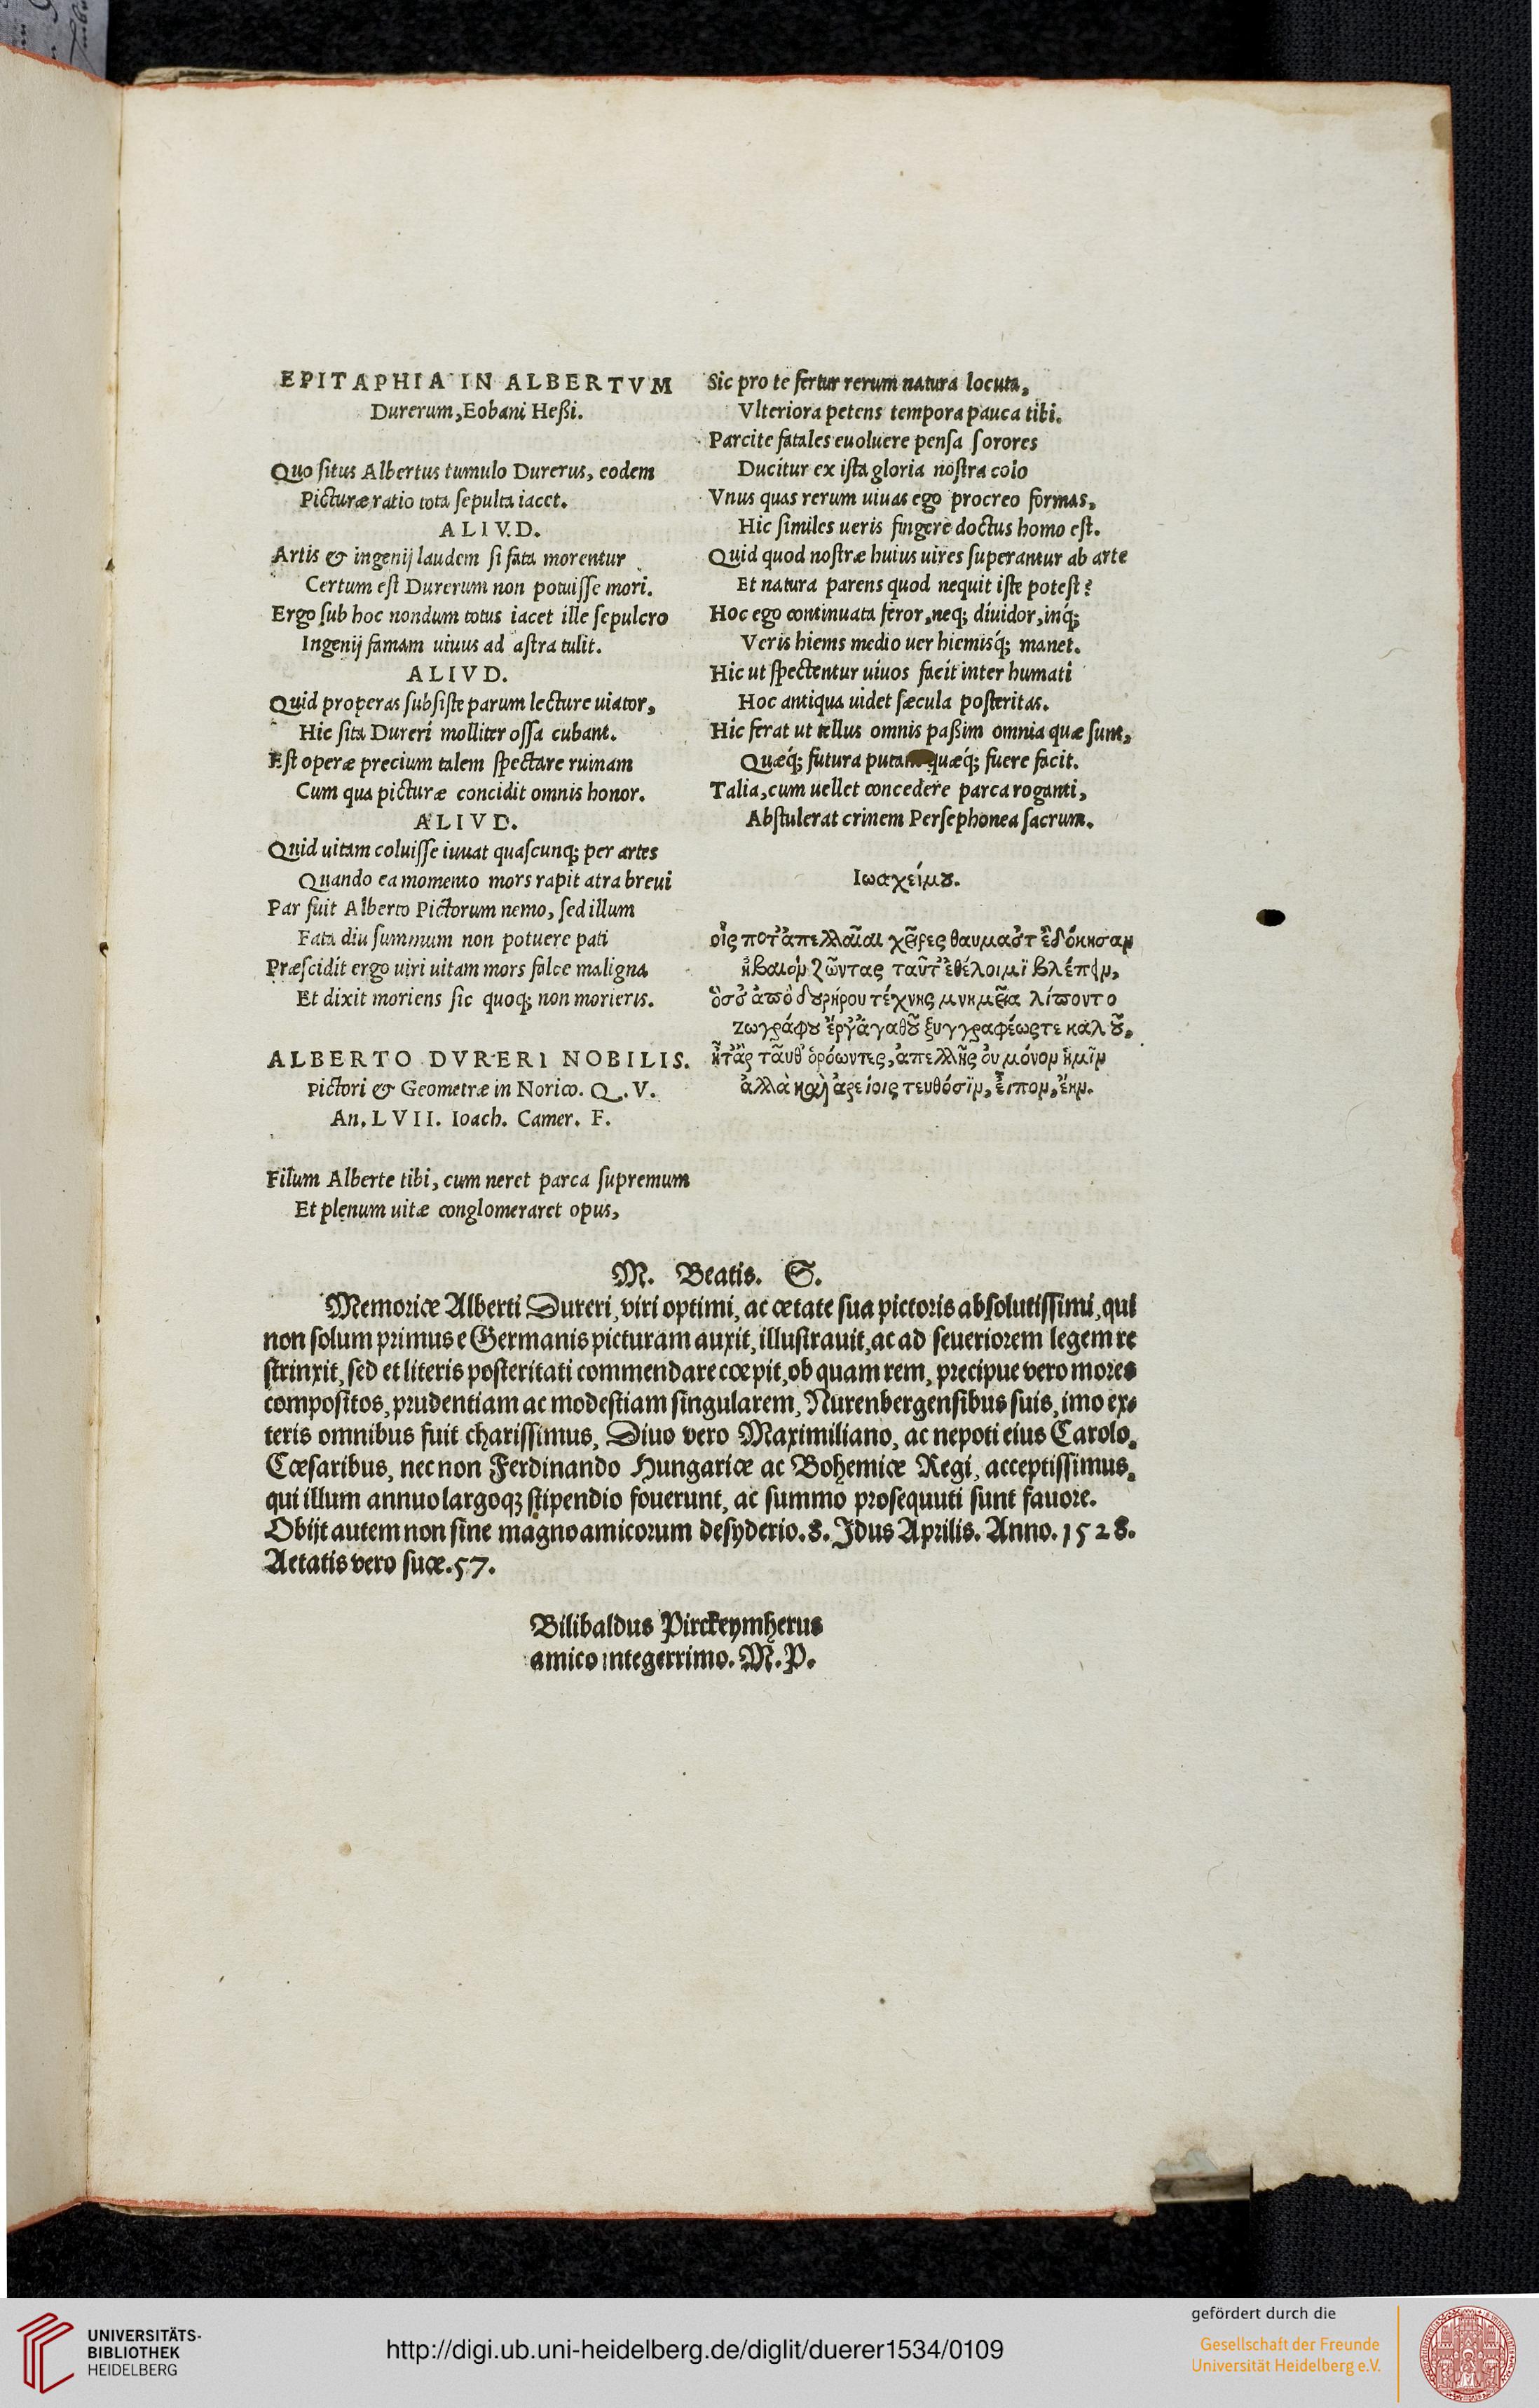 EPITAPHIA IN ALBERTVM
Durerum, Eobani Heßi.
Quo ſitus Albertus tumulo Durerus, eodem
Picturæ ratio tota ſepulta iacet.
ALIVD.
Artis & ingenij laudem ſi fata morentur
Certum eſt Durerum non potuiſſe mori.
Ergo ſub hoc nondum totus iacet ille ſepulcro
Ingenij famam uiuus ad aſtra tulit.
ALIVD.
Quid properas ſubſiſte parum lecture uiator,
Hic ſita Dureri molliter oſſa cubant.
Eſt operæ precium talem ſpectare ruinam
Cum qua picturæ concidit omnis honor.
ALIVD.
Quid uitam coluiſſe iuuat quaſcunq; per artes
Quando ea momento mors rapit atra breui
Par fuit Alberto Pictorum nemo, ſed illum
Fata diu ſummum non potuere pati
Præſcidit ergo uiri uitam mors falce maligna
Et dixit moriens ſic quoq; non morieris.
ALBERTO DVRERI NOBILIS.
Pictori & Geometræ in Norico. Q. V.
An. LVII. Ioach. Camer. F.
Filum Alberte tibi, cum neret parca ſupremum
Et plenum uitæ conglomeraret opus,
Sic pro te fertur rerum natura locuta,
Vlteriora petens tempora pauca tibi.
Parcite fatales euoluere penſa ſorores
Ducitur ex iſta gloria noſtra colo
Vnus quas rerum uiuas ego procreo formas,
Hic ſimiles ueris fingere doctus homo eſt.
Quid quod noſtræ huius uires ſuperantur ab arte
Et natura parens quod nequit iſte poteſt?
Hoc ego continuata feror, neq; diuidor, inq́;
Veris hiems medio uer hiemisq́; manet.
Hic ut ſpectentur uiuos facit inter humati
Hoc antiqua uidet ſæcula poſteritas.
Hic ferat ut tellus omnis paßim omnia quæ ſunt,
Quæq́; futura quæq́; fuere facit.
Talia, cum uellet concedere parca roganti,
Abſtulerat crinem Perſephonea ſacrum.
Ιωαχείμȣ.
οἷς ποτ' ἀπελλαῖαι χεῖρες θαυμαστ' ἐδόκησαν
ἠβαιὸν ζῶντας ταῦτ' ἐθέλοιμϊ βλέπειν,
ὅσσ' ἀπὸ δȣρήρου τέχνης μνημεῖα λίποντο
ζωγράφȣ ἔργ' ἀγαθοῦ ξυγγραφέως τε καλοῦ.
ἦτὰρ ταῦθ' ὁρόωντες, ἀπελλῆς ὀυ μόνον ἡμῖν
ἀλλὰ καὶ ἀρείοις τευθόσϊν, εἶπον, ἔην.
M. Beatis. S.
Memoriæ Alberti Dureri, viri optimi, ac ætate ſua pictoris abſolutiſſimi, qui
non ſolum primus e Germanis picturam auxit, illuſtrauit, ac ad ſeueriorem legem re
ſtrinxit, ſed et literis poſteritati commendare cœpit, ob quam rem, precipue vero mores
compoſitos, prudentiam ac modeſtiam ſingularem, Nurenbergenſibus ſuis, imo ex⸗
teris omnibus fuit chariſſimus, Diuo vero Maximiliano, ac nepoti eius Carolo,
Cæſaribus, nec non Ferdinando Hungariæ ac Bohemiæ Regi, acceptiſſimus,
qui illum annuo largoqꝫ ſtipendio fouerunt, ac ſummo proſequuti ſunt fauore.
Obijt autem non ſine magno amicorum deſyderio. 8. Idus Aprilis. Anno. 1528.
Aetatis vero ſuæ. 57.
Bilibaldus Pirckeymherus
amico integerrimo. M. P.
UNIVERSITÄTS-
BIBLIOTHEK
HEIDELBERG
http://digi.ub.uni-heidelberg.de/diglit/duerer1534/0109
gefördert durch die
Gesellschaft der Freunde
Universität Heidelberg e.V.